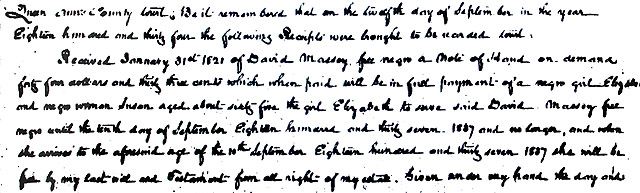 Queen Anns County towit; Be it remembered that on the twelfth day of September in the year
Eighteen hundred and thirty four the following Receipts were brought to be recorded towit:
Received January 31st 1821 of David Massey free negro a Note of Hand on demand
forty four dollars and thirty three cents which when paid will be in full payment of a negro girl Elizabeth
and negro woman Susan aged about sixty five the girl Elizabeth to serve said David Massey free
negro until the tenth day of September Eighteen hundred and thirty seven 1837 and no longer, and when
she arrives to the aforesaid age of the 10th September Eighteen hundred and thirty seven 1837 she will be
free by my last will and Testament from all right of my estate. Given under my hand the day and